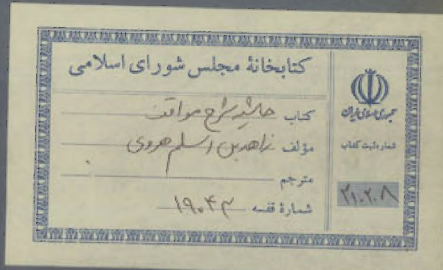 کتابخانهٔ مجلس شورای اسلامی
کتاب حاشیه شرح مواقف
مؤلف زاهدبن اسلم هروی
مترجم
شمارهٔ قفسه ۱۹۰۴۳
جمهوری اسلامی ایران
شماره ثبت کتاب
۲۱۰۲۰۸